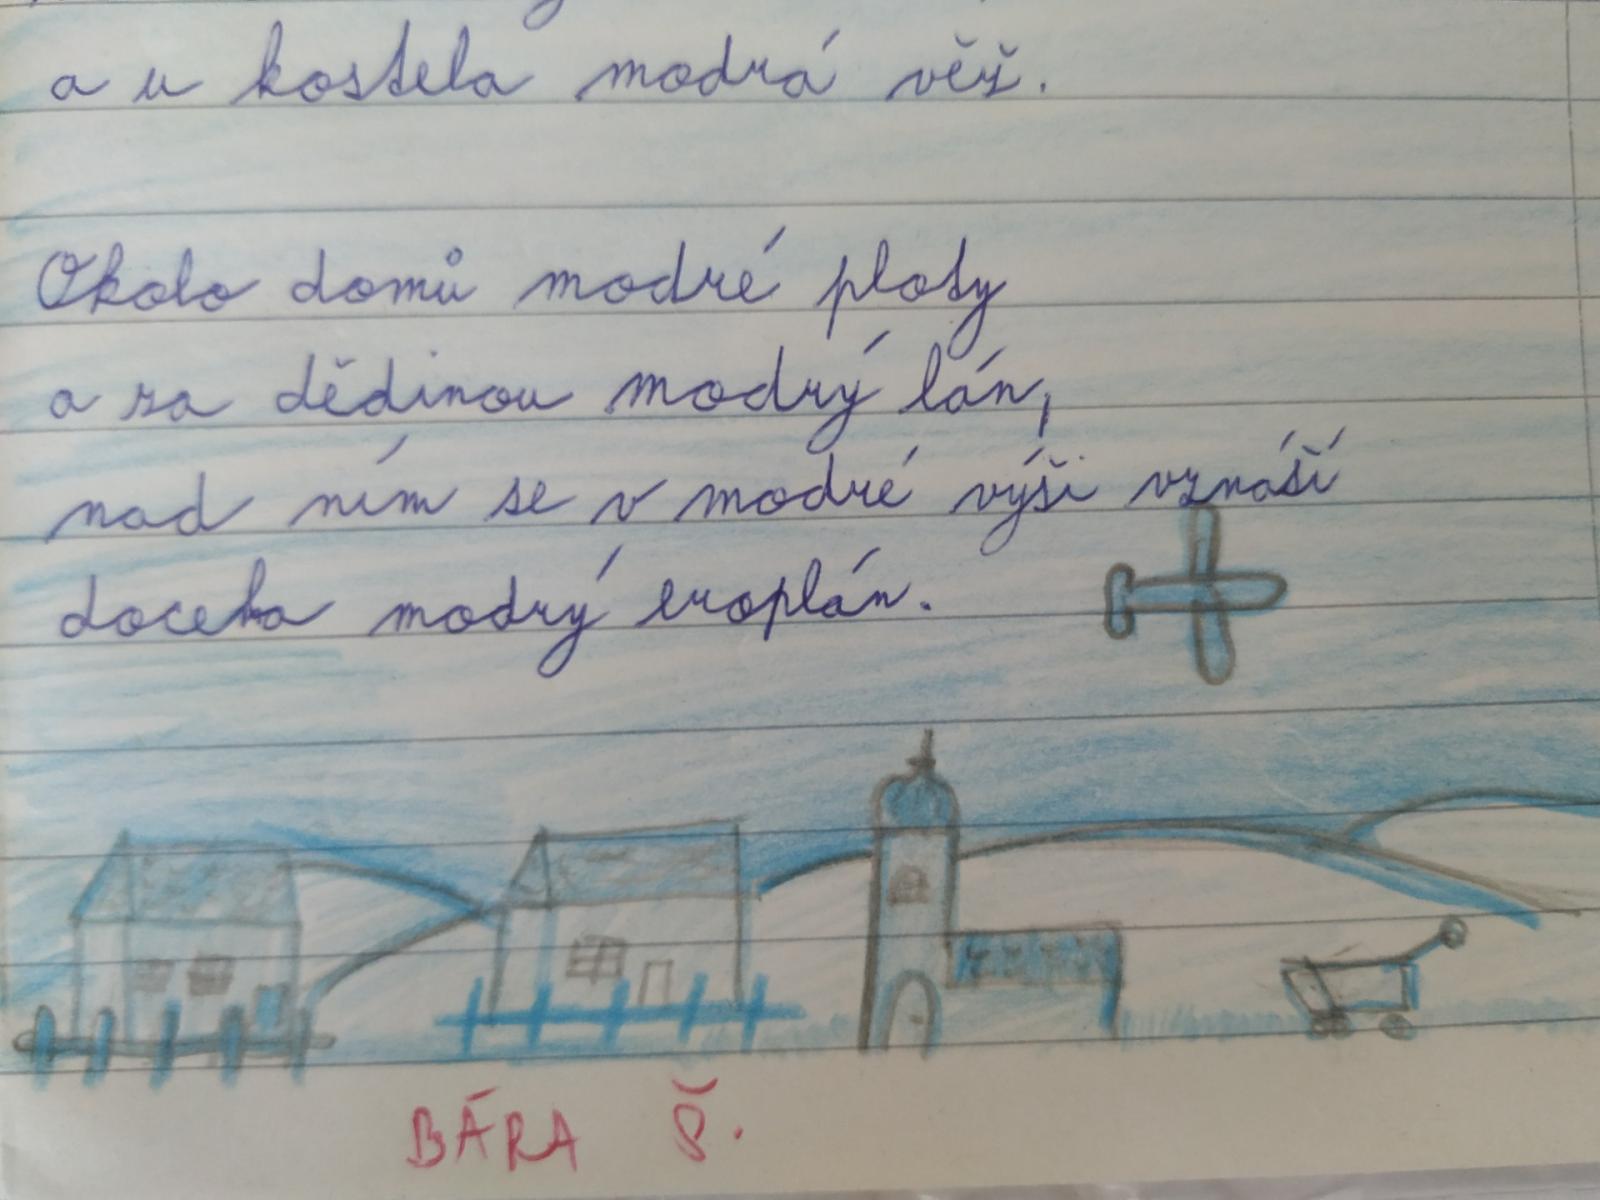 a u kostela modrá věž.
Okolo domů modré ploty
a za dědinou modrý lán,
nad ním se v modré výši vznáší
docela modrý eroplán.
BÁRA Š.